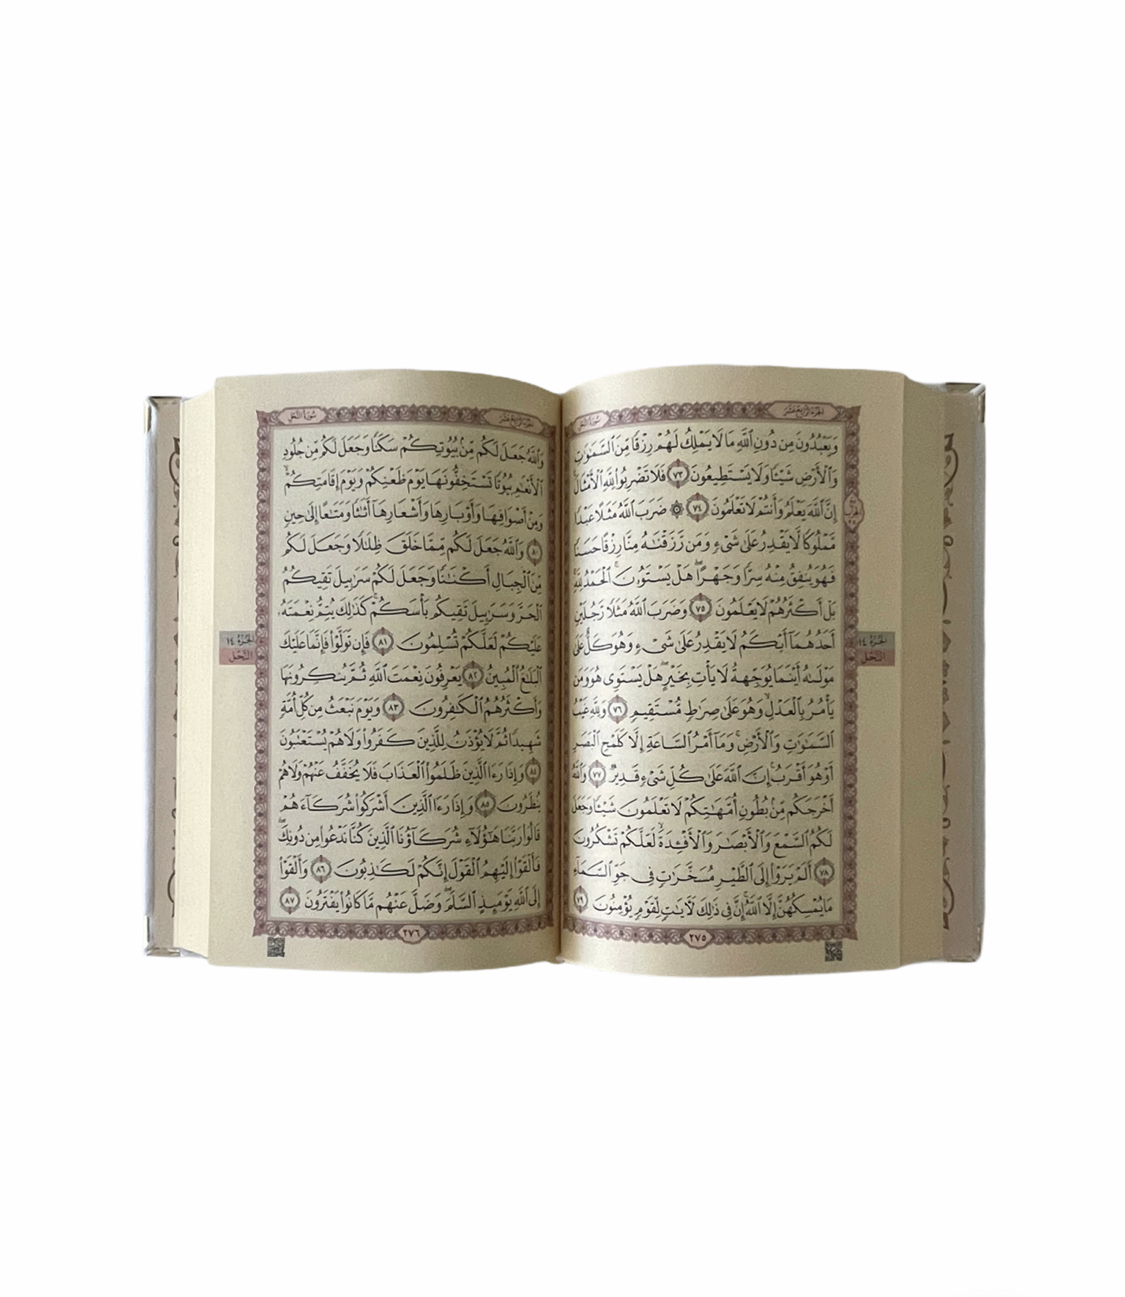 الجزء الرابع عشر
سورة النحل
وَيَعْبُدُونَ مِن دُونِ ٱللَّهِ مَا لَا يَمْلِكُ لَهُمْ رِزْقًا مِّنَ ٱلسَّمَٰوَٰتِ
وَٱلْأَرْضِ شَيْـًٔا وَلَا يَسْتَطِيعُونَ ٧٣ فَلَا تَضْرِبُوا۟ لِلَّهِ ٱلْأَمْثَالَ ۚ
إِنَّ ٱللَّهَ يَعْلَمُ وَأَنتُمْ لَا تَعْلَمُونَ ٧٤ ۞ ضَرَبَ ٱللَّهُ مَثَلًا عَبْدًا
مَّمْلُوكًا لَّا يَقْدِرُ عَلَىٰ شَىْءٍ وَمَن رَّزَقْنَٰهُ مِنَّا رِزْقًا حَسَنًا
فَهُوَ يُنفِقُ مِنْهُ سِرًّا وَجَهْرًا ۖ هَلْ يَسْتَوُۥنَ ۚ ٱلْحَمْدُ لِلَّهِ ۚ
بَلْ أَكْثَرُهُمْ لَا يَعْلَمُونَ ٧٥ وَضَرَبَ ٱللَّهُ مَثَلًا رَّجُلَيْنِ
أَحَدُهُمَآ أَبْكَمُ لَا يَقْدِرُ عَلَىٰ شَىْءٍ وَهُوَ كَلٌّ عَلَىٰ
مَوْلَىٰهُ أَيْنَمَا يُوَجِّههُّ لَا يَأْتِ بِخَيْرٍ ۖ هَلْ يَسْتَوِى هُوَ وَمَن
يَأْمُرُ بِٱلْعَدْلِ ۙ وَهُوَ عَلَىٰ صِرَٰطٍ مُّسْتَقِيمٍ ٧٦ وَلِلَّهِ غَيْبُ
ٱلسَّمَٰوَٰتِ وَٱلْأَرْضِ ۚ وَمَآ أَمْرُ ٱلسَّاعَةِ إِلَّا كَلَمْحِ ٱلْبَصَرِ
أَوْ هُوَ أَقْرَبُ ۚ إِنَّ ٱللَّهَ عَلَىٰ كُلِّ شَىْءٍ قَدِيرٌ ٧٧ وَٱللَّهُ
أَخْرَجَكُم مِّنۢ بُطُونِ أُمَّهَٰتِكُمْ لَا تَعْلَمُونَ شَيْـًٔا وَجَعَلَ
لَكُمُ ٱلسَّمْعَ وَٱلْأَبْصَٰرَ وَٱلْأَفْـِٔدَةَ ۙ لَعَلَّكُمْ تَشْكُرُونَ
٧٨ أَلَمْ يَرَوْا۟ إِلَى ٱلطَّيْرِ مُسَخَّرَٰتٍ فِى جَوِّ ٱلسَّمَآءِ
مَا يُمْسِكُهُنَّ إِلَّا ٱللَّهُ ۗ إِنَّ فِى ذَٰلِكَ لَـَٔايَٰتٍ لِّقَوْمٍ يُؤْمِنُونَ ٧٩
٢٧٥
الجزء ١٤
النحل
الجزء الرابع عشر
سورة النحل
وَٱللَّهُ جَعَلَ لَكُم مِّنۢ بُيُوتِكُمْ سَكَنًا وَجَعَلَ لَكُم مِّن جُلُودِ
ٱلْأَنْعَٰمِ بُيُوتًا تَسْتَخِفُّونَهَا يَوْمَ ظَعْنِكُمْ وَيَوْمَ إِقَامَتِكُمْ ۙ
وَمِنْ أَصْوَافِهَا وَأَوْبَارِهَا وَأَشْعَارِهَآ أَثَٰثًا وَمَتَٰعًا إِلَىٰ حِينٍ
٨٠ وَٱللَّهُ جَعَلَ لَكُم مِّمَّا خَلَقَ ظِلَٰلًا وَجَعَلَ لَكُم
مِّنَ ٱلْجِبَالِ أَكْنَٰنًا وَجَعَلَ لَكُمْ سَرَٰبِيلَ تَقِيكُمُ
ٱلْحَرَّ وَسَرَٰبِيلَ تَقِيكُم بَأْسَكُمْ ۚ كَذَٰلِكَ يُتِمُّ نِعْمَتَهُۥ
عَلَيْكُمْ لَعَلَّكُمْ تُسْلِمُونَ ٨١ فَإِن تَوَلَّوْا۟ فَإِنَّمَا عَلَيْكَ
ٱلْبَلَٰغُ ٱلْمُبِينُ ٨٢ يَعْرِفُونَ نِعْمَتَ ٱللَّهِ ثُمَّ يُنكِرُونَهَا
وَأَكْثَرُهُمُ ٱلْكَٰفِرُونَ ٨٣ وَيَوْمَ نَبْعَثُ مِن كُلِّ أُمَّةٍ
شَهِيدًا ثُمَّ لَا يُؤْذَنُ لِلَّذِينَ كَفَرُوا۟ وَلَا هُمْ يُسْتَعْتَبُونَ
٨٤ وَإِذَا رَءَا ٱلَّذِينَ ظَلَمُوا۟ ٱلْعَذَابَ فَلَا يُخَفَّفُ عَنْهُمْ وَلَا هُمْ
يُنظَرُونَ ٨٥ وَإِذَا رَءَا ٱلَّذِينَ أَشْرَكُوا۟ شُرَكَآءَهُمْ
قَالُوا۟ رَبَّنَا هَٰٓؤُلَآءِ شُرَكَآؤُنَا ٱلَّذِينَ كُنَّا نَدْعُوا۟ مِن دُونِكَ ۖ
فَأَلْقَوْا۟ إِلَيْهِمُ ٱلْقَوْلَ إِنَّكُمْ لَكَٰذِبُونَ ٨٦ وَأَلْقَوْا۟
إِلَى ٱللَّهِ يَوْمَئِذٍ ٱلسَّلَمَ ۖ وَضَلَّ عَنْهُم مَّا كَانُوا۟ يَفْتَرُونَ ٨٧
٢٧٦
الجزء ١٤
النحل